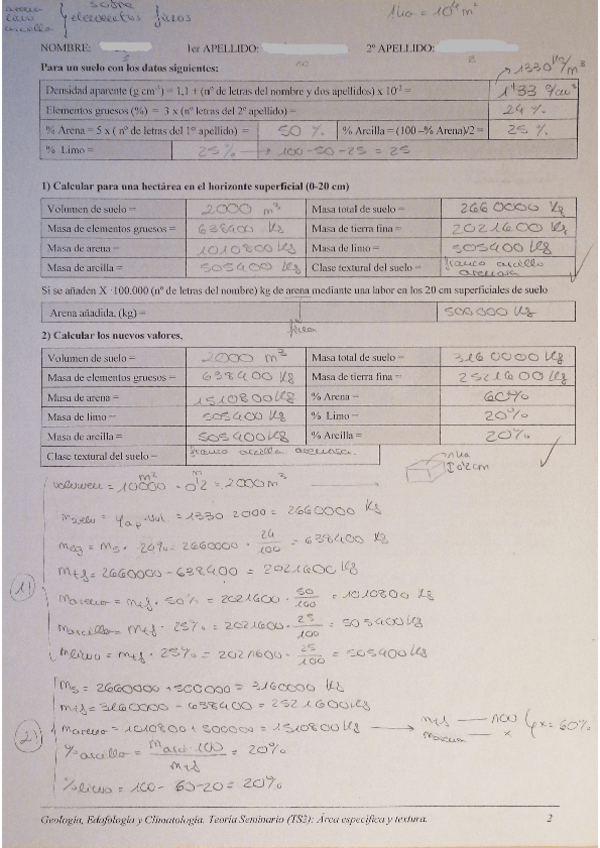 arena
limo
arcilla
sobre
elementos finos
1ha = 10⁴ m²
NOMBRE: 1er APELLIDO: 2º APELLIDO:
Para un suelo con los datos siguientes: → 1330 kg/m³
Densidad aparente (g cm⁻³) = 1,1 + (nº de letras del nombre y dos apellidos) x 10⁻² = 1'33 g/cm³
Elementos gruesos (%) = 3 x (nº letras del 2º apellido) = 24 %
% Arena = 5 x ( nº de letras del 1º apellido) = 50 % % Arcilla = (100 –% Arena)/2 = 25 %
% Limo = 25% → 100-50-25 = 25
1) Calcular para una hectárea en el horizonte superficial (0-20 cm)
Volumen de suelo = 2000 m³ Masa total de suelo = 2660000 Kg
Masa de elementos gruesos = 638400 Kg Masa de tierra fina = 2021600 Kg
Masa de arena = 1010800 Kg Masa de limo = 505400 Kg
Masa de arcilla = 505400 Kg Clase textural del suelo = franco arcillo arenosa
Si se añaden X ·100.000 (nº de letras del nombre) kg de arena mediante una labor en los 20 cm superficiales de suelo
Arena añadida, (kg) = 500000 Kg
fina
2) Calcular los nuevos valores.
Volumen de suelo = 2000 m³ Masa total de suelo = 3160000 Kg
Masa de elementos gruesos = 638400 Kg Masa de tierra fina = 2521600 Kg
Masa de arena = 1510800 Kg % Arena = 60%
Masa de limo = 505400 Kg % Limo = 20%
Masa de arcilla = 505400 Kg % Arcilla = 20%
Clase textural del suelo = franco arcilla arenosa.
1ha
0'2cm
volumen = 10000 m² · 0'2 m = 2000 m³
1)
msuelo = γap · vol = 1330 · 2000 = 2660000 Kg
meg = ms · 24% = 2660000 · 24/100 = 638400 Kg
mtf = 2660000 - 638400 = 2021600 Kg
marena = mtf · 50% = 2021600 · 50/100 = 1010800 Kg
marcilla = mtf · 25% = 2021600 · 25/100 = 505400 Kg
mlimo = mtf · 25% = 2021600 · 25/100 = 505400 Kg
2)
ms = 2660000 + 500000 = 3160000 Kg
mtf = 3160000 - 638400 = 2521600 Kg
marena = 1010800 + 500000 = 1510800 Kg → mtf — 100
marena — x } x = 60%
% arcilla = marc · 100 / mtf = 20%
% limo = 100 - 60 - 20 = 20%
Geología, Edafología y Climatología. Teoría Seminario (TS2): Área específica y textura. 2